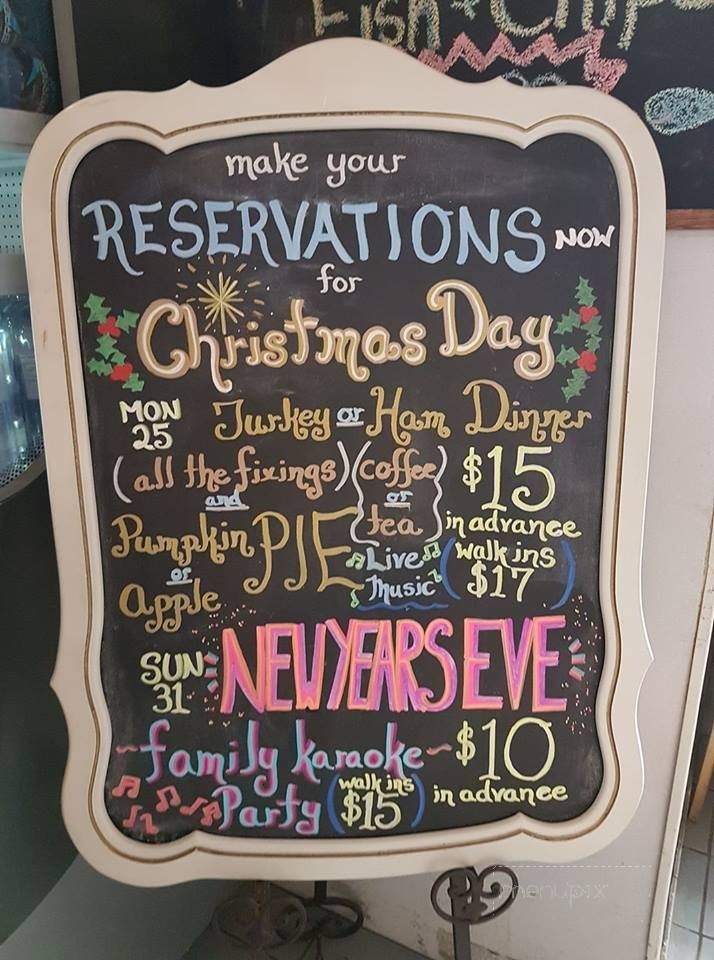 Fish + Chips
make your
RESERVATIONS NOW
for
Christmas Day
MON 25 Turkey or Ham Dinner
(all the fixings) (coffee or tea) $15
and
in advance
Pumpkin or apple PIE
Live Music
(walk ins $17)
SUN 31 NEW YEARS EVE
~family karaoke~ $10
Party (walk ins $15) in advance
menupix